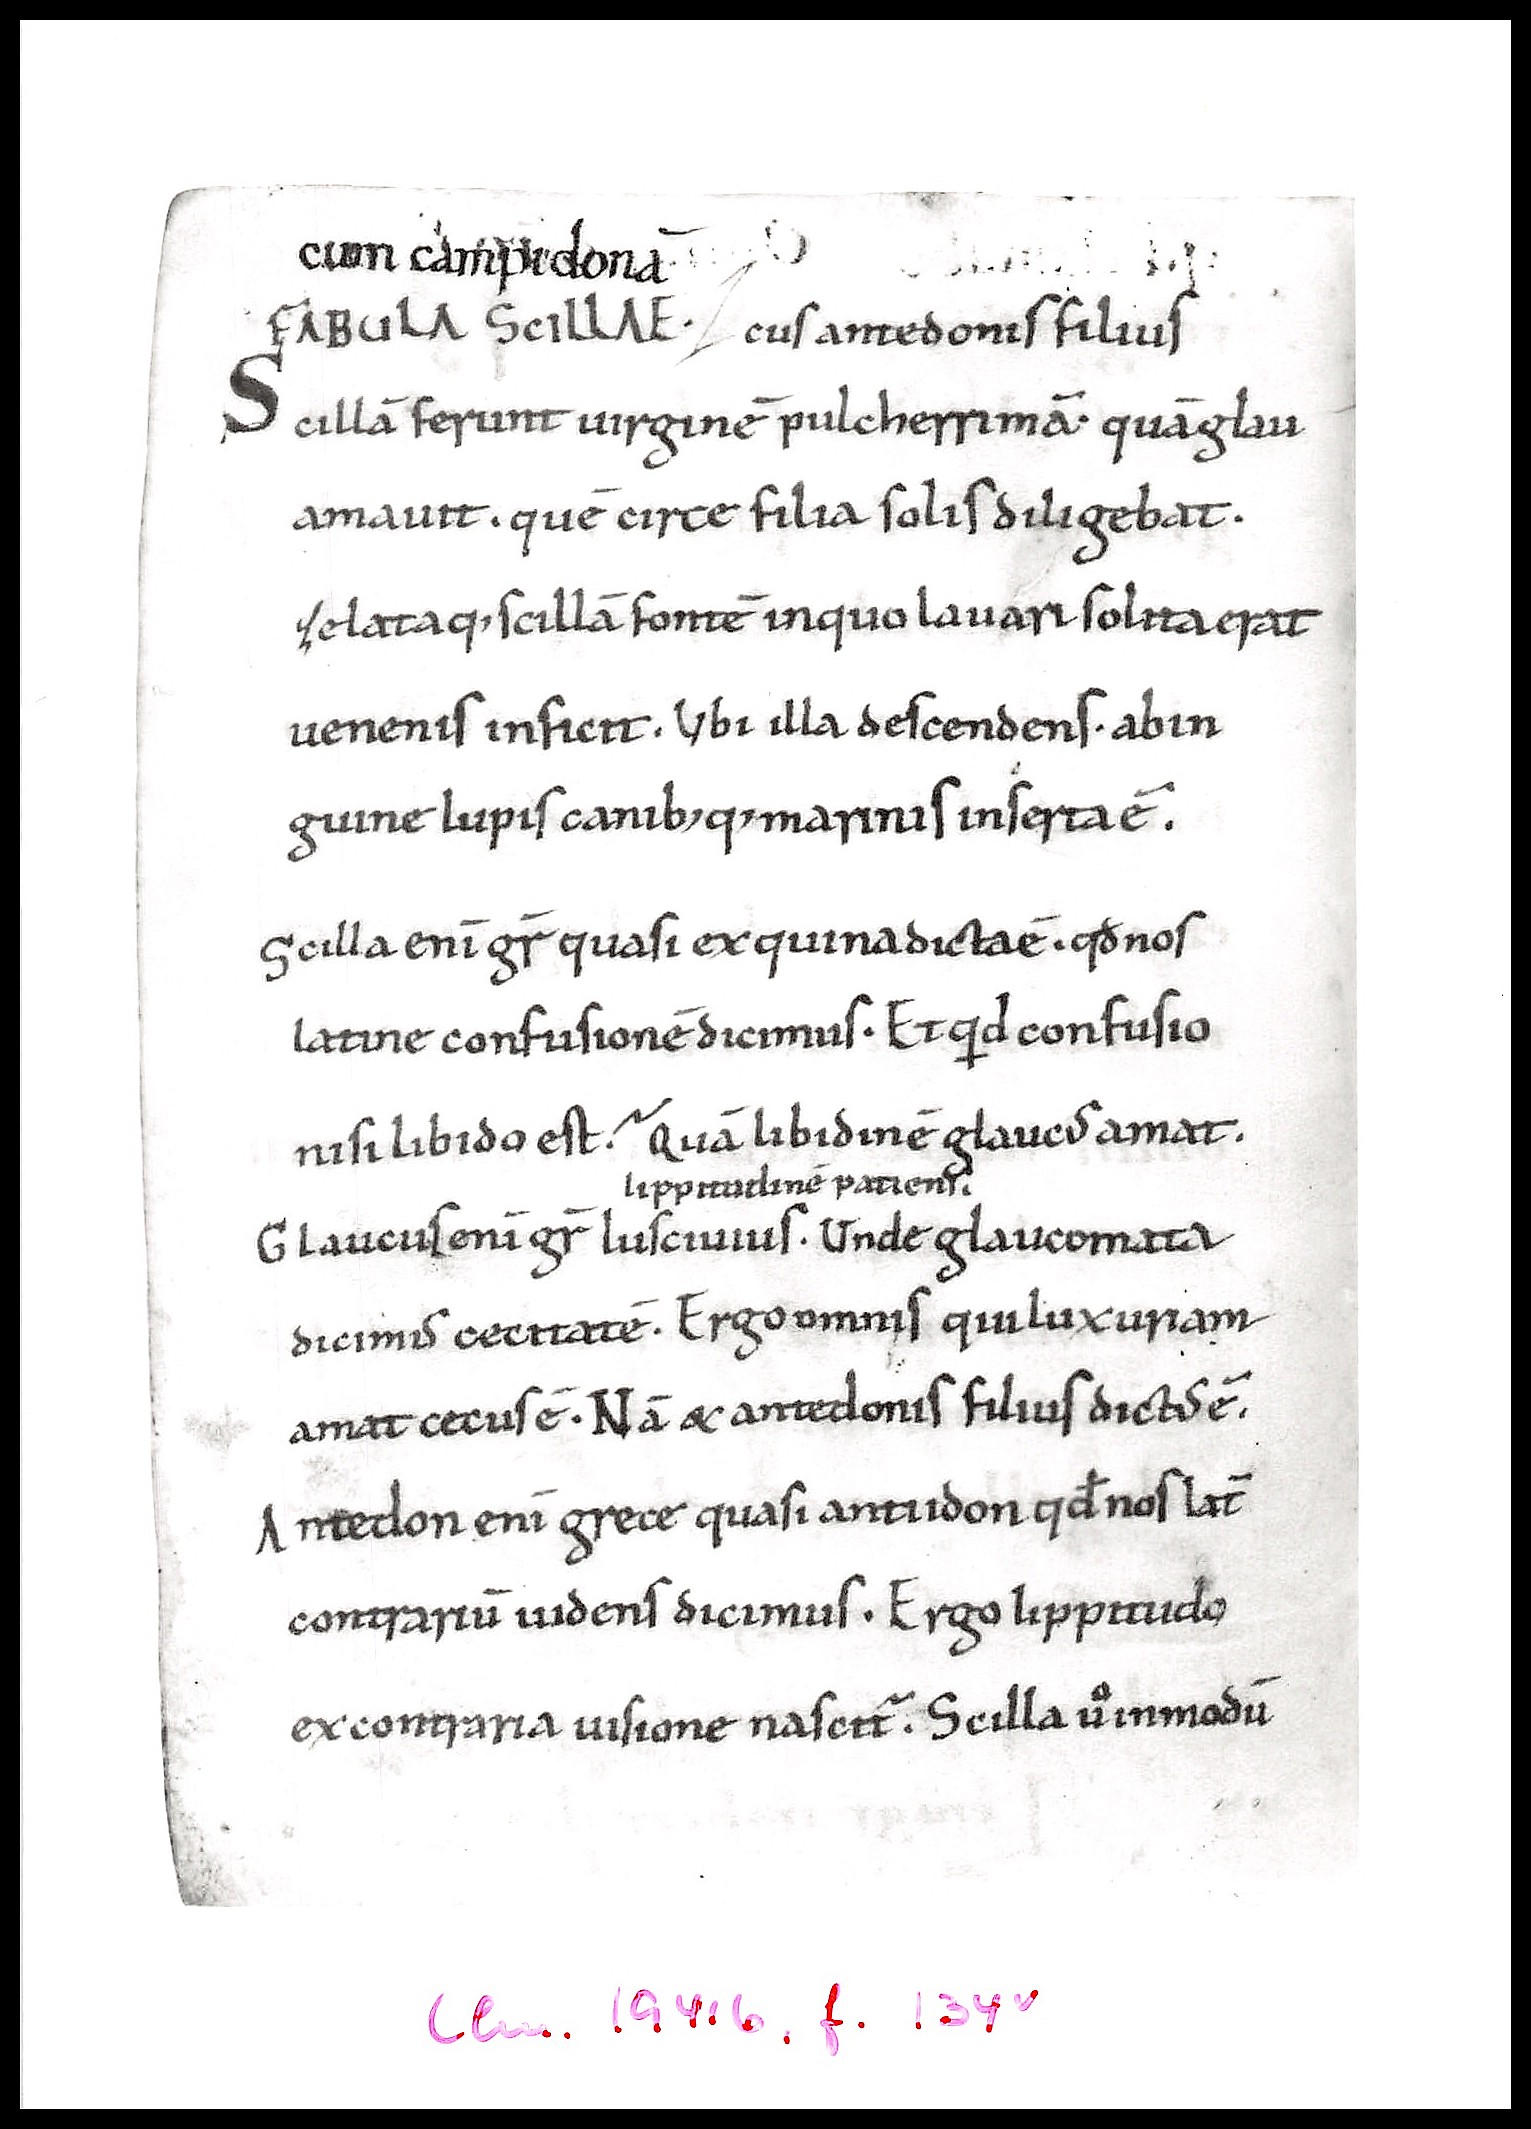 cum campidonā
FABULA SCILLAE. cus antedonis filius
Scillā ferunt uirginē pulcherrimā. quā glau
amauit. quē circe filia solis diligebat.
zelataq, scillā fontē inquo lauari solita erat
uenenis inficit. Vbi illa descendens. abin
guine lupis canib,q, marinis inserta ē.
Scilla enī gr̄ quasi exquina dicta ē. qđ nos
latine confusionē dicimus. Et qꝗd confusio
nisi libido est. Quā libidinē glaucꝰ amat.
lippitudinē patiens.
Glaucus enī gr̄ lusciuius. Unde glaucomata
dicimꝰ cecitatē. Ergo omnis qui luxuriam
amat cecus ē. Nā & antedonis filius dictꝰ ē.
Antedon enī grece quasi antiidon qđ nos lat̄
contrariū uidens dicimus. Ergo lippitudo
excontraria uisione nascit᷑. Scilla uͦ inmodū
Clm. 19416, f. 134v